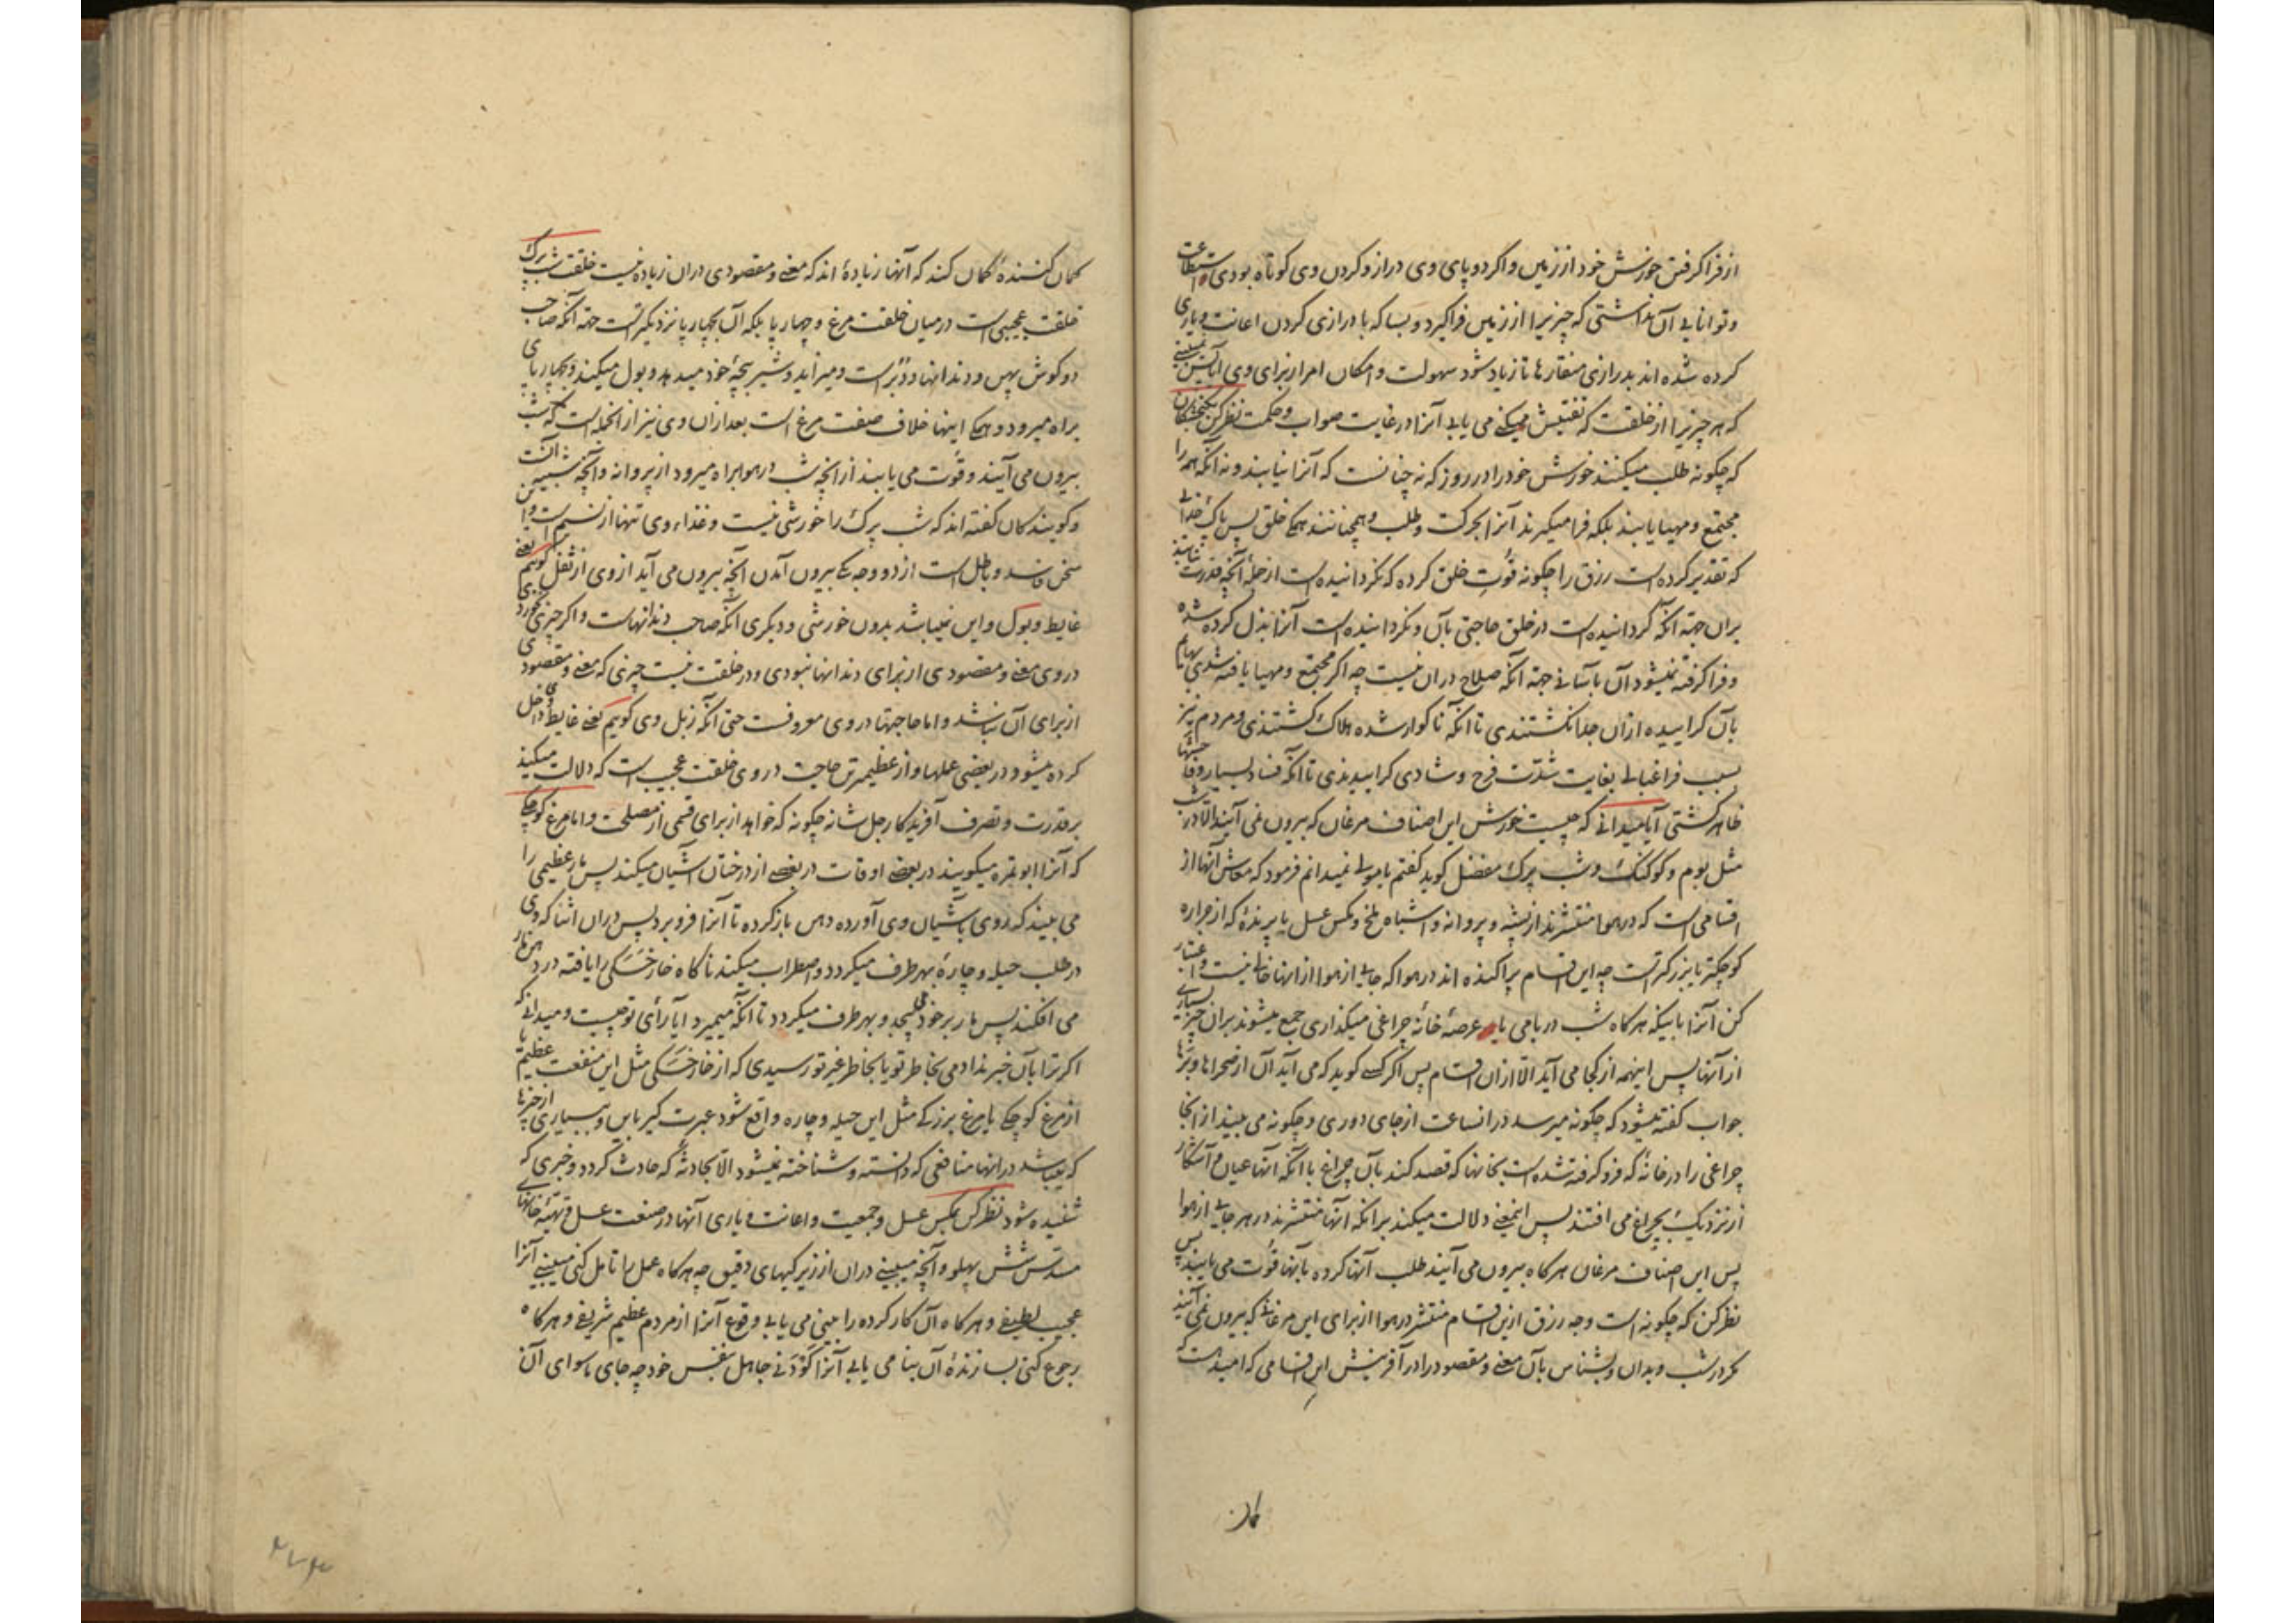 از فرا کرفتن خورش خود از زمین و اکر دو پای وی دراز و کردن وی کوتاه بودی استطاعت
و توانایی آن نداشتی که چیزیرا از زمین فرا کیرد و بسا که با درازی کردن اعانت و یاری
کرده شده اند بدرازی منقارها تا زیاد شود سهولت و امکان امر از برای وی آیا نمی بینی
که هر چیزیرا از خلقت که تفتیش میکنی می یابی آنرا در غایت صواب و حکمت نظر کن بکنجشکان
که چکونه طلب میکنند خورش خود را در روز که نه چنانست که آنرا نیابند و نه آنکه همه را
مجتمع و مهیا یابند بلکه فرا میکیرند آنرا بحرکت و طلب و همچنانند همکی خلق پس پاک خدائی
که تقدیر کرده است رزق را چکونه قوت خلق کرده که نکردانیده است از جمله آنچه قدرت نباشد
بران جهة آنکه کردانیده است در خلق حاجتی بآن و نکردانیده است آنرا بذل کرده شده
و فرا کرفته نمیشود آن بآسانی جهة آنکه صلاح دران نیست چه اکر مجتمع و مهیا یافته شدی بهایم
بآن کراییده ازان جدا نکشتندی تا آنکه ناکوار شده هلاک کشتندی و مردم نیز
بسبب فراغبالی بغایت شدت فرح و شادی کراییدندی تا آنکه فساد بسیار و فاحشها
ظاهر کشتی آیا میدانی که چیست خورش این اصناف مرغان که بیرون نمی آیند الا در شب
مثل بوم و کوکنک و شب پرک مفضل کوید کفتم یا مولی نمیدانم فرمود که معاش آنها از
اقسامی است که در هوا منتشرند از پشه و پروانه و اشباه ملخ و مکس عسل یا پرنده که از جراره
کوچکتر یا بزرکترست چه این اقسام پراکنده اند در هوا که جایی از هوا از اینها خالی نیست و اعتبار
کن آنرا باینکه هرکاه شب در بامی یا عرصهٔ خانه چراغی میکذاری جمع میشوند بران چیز بسیاری
از آنها پس اینهمه از کجا می آید الا ازان اقسام پس اکر کسی کوید که می آید آن از صحراها و برها
جواب کفته میشود که چکونه میرسد در انساعت از جای دوری و چکونه می بیند از انجا
چراغی را در خانهٔ که فرو کرفته شده است بخانها که قصد کند بآن چراغ با آنکه آنها عیان و آشکار
از نزدیک بچراغ می افتند پس اینمعنی دلالت میکند برانکه آنها منتشرند در هر جایی از هوا
پس این اصناف مرغان هرکاه بیرون می آیند طلب آنها کرده بآنها قوت می یابند پس
نظر کن که چکونه است وجه رزق ازین اقسام منتشر در هوا از برای این مرغانی که بیرون نمی آیند
مکر در شب و بدان و بشناس بآن معنی و مقصود را در آفرینش این اقسامی که امیدست که
کمان
کمان کنندهٔ کمان کند که آنها زیادهٔ اند که معنی و مقصودی دران زیاده نیست خلقت شب پرک
خلقت عجیبی است در میان خلقت مرغ و چهارپا بلکه آن بچهارپا نزدیکترست جهة آنکه صاحب
دو کوش پهن و دندانها و دبر است و میزاید و شیر بچهٔ خود میدهد و بول میکند و بچهارپای
براه میرود و همکی اینها خلاف صفت مرغ است بعد ازان وی نیز از انجمله است که شب
بیرون می آیند و قوت می یابند از انچه شب در هوا براه میرود از پروانه و آنچه شبیه آنست
و کویندکان کفته اند که شب پرک را خورشی نیست و غذاء وی تنها از نسیم است و این
سخن فاسد و باطل است از دو وجه یکی بیرون آمدن آنچه بیرون می آید از وی از ثفل کویم یعنی
غایط و بول و این نمیباشد بدون خورشی و دیکری آنکه صاحب دندانهاست و اکر چیزی نخوردی
در وی معنی و مقصودی از برای دندانها نبودی و در خلقت نیست چیزی که معنی و مقصودی
از برای آن نباشد و اما حاجتها در وی معروفست حتی آنکه زبل وی کویم یعنی غایط وی داخل
کرده میشود در بعضی عملها و از عظیمترین حاجت در وی خلقت عجیب است که دلالت میکند
بر قدرت و تصرف آفریدکار جل شانه چکونه که خواهد از برای قسمی از مصلحت و اما مرغ کوچکی
که آنرا ابو تمره میکویند در بعضی اوقات در بعضی از درختان آشیان میکند پس مار عظیمی را
می بیند که روی بآشیان وی آورده دهن باز کرده تا آنرا فرو برد پس دران اثنا که وی
در طلب حیله و چارهٔ بهر طرف میکردد و اضطراب میکند ناکاه خار خسکی را یافته در دهن مار
می افکند پس مار بر خود می پیچد و بهر طرف میکردد تا آنکه میمیرد آیا رأی تو چیست و میدانی که
اکر ترا بآن خبر ندادمی بخاطر تو یا بخاطر غیر تو رسیدی که از خار خسکی مثل این منفعت عظیم یا
از مرغ کوچکی یا مرغ بزرکی مثل این حیله و چاره واقع شود عبرت کیر باین و بسیاری از چیزها
که میباشد درانها منافعی که دانسته و شناخته نمیشود الا بحادثهٔ که حادث کردد و خبری که
شنیده شود نظر کن بمکس عسل و جمعیت و اعانت و یاری آنها در صنعت عسل و تهیهٔ خانهای
مسدس شش پهلو و آنچه می بینی دران از زیرکیهای دقیق چه هرکاه عمل را تامل کنی می بینی آنرا
عجیب لطیفی و هرکاه آن کار کرده را می بینی می یابی وقوع آنرا از مردم عظیم شریفی و هرکاه
رجوع کنی بسازندهٔ آن بنا می یابی آنرا کودنی جاهل بنفس خود چه جای ماسوای آن